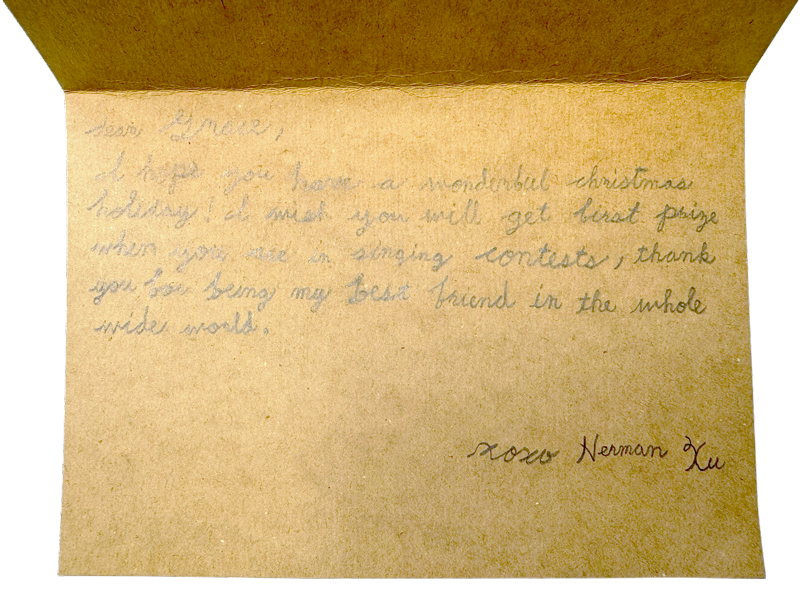 dear Grace,
I hope you have a wonderful christmas
holiday! I wish you will get first prize
when you are in singing contests, thank
you for being my best friend in the whole
wide world.
xoxo Herman Xu